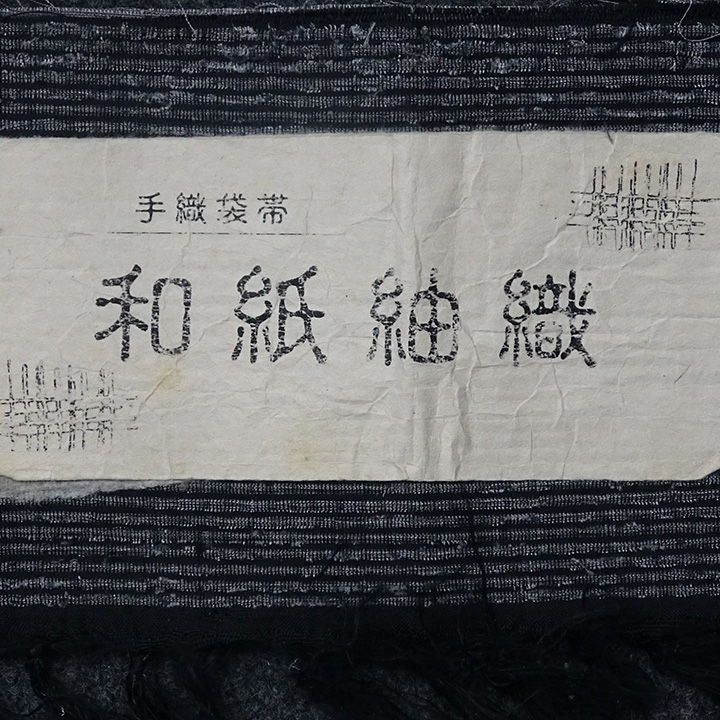 手織袋帯
和紙紬織